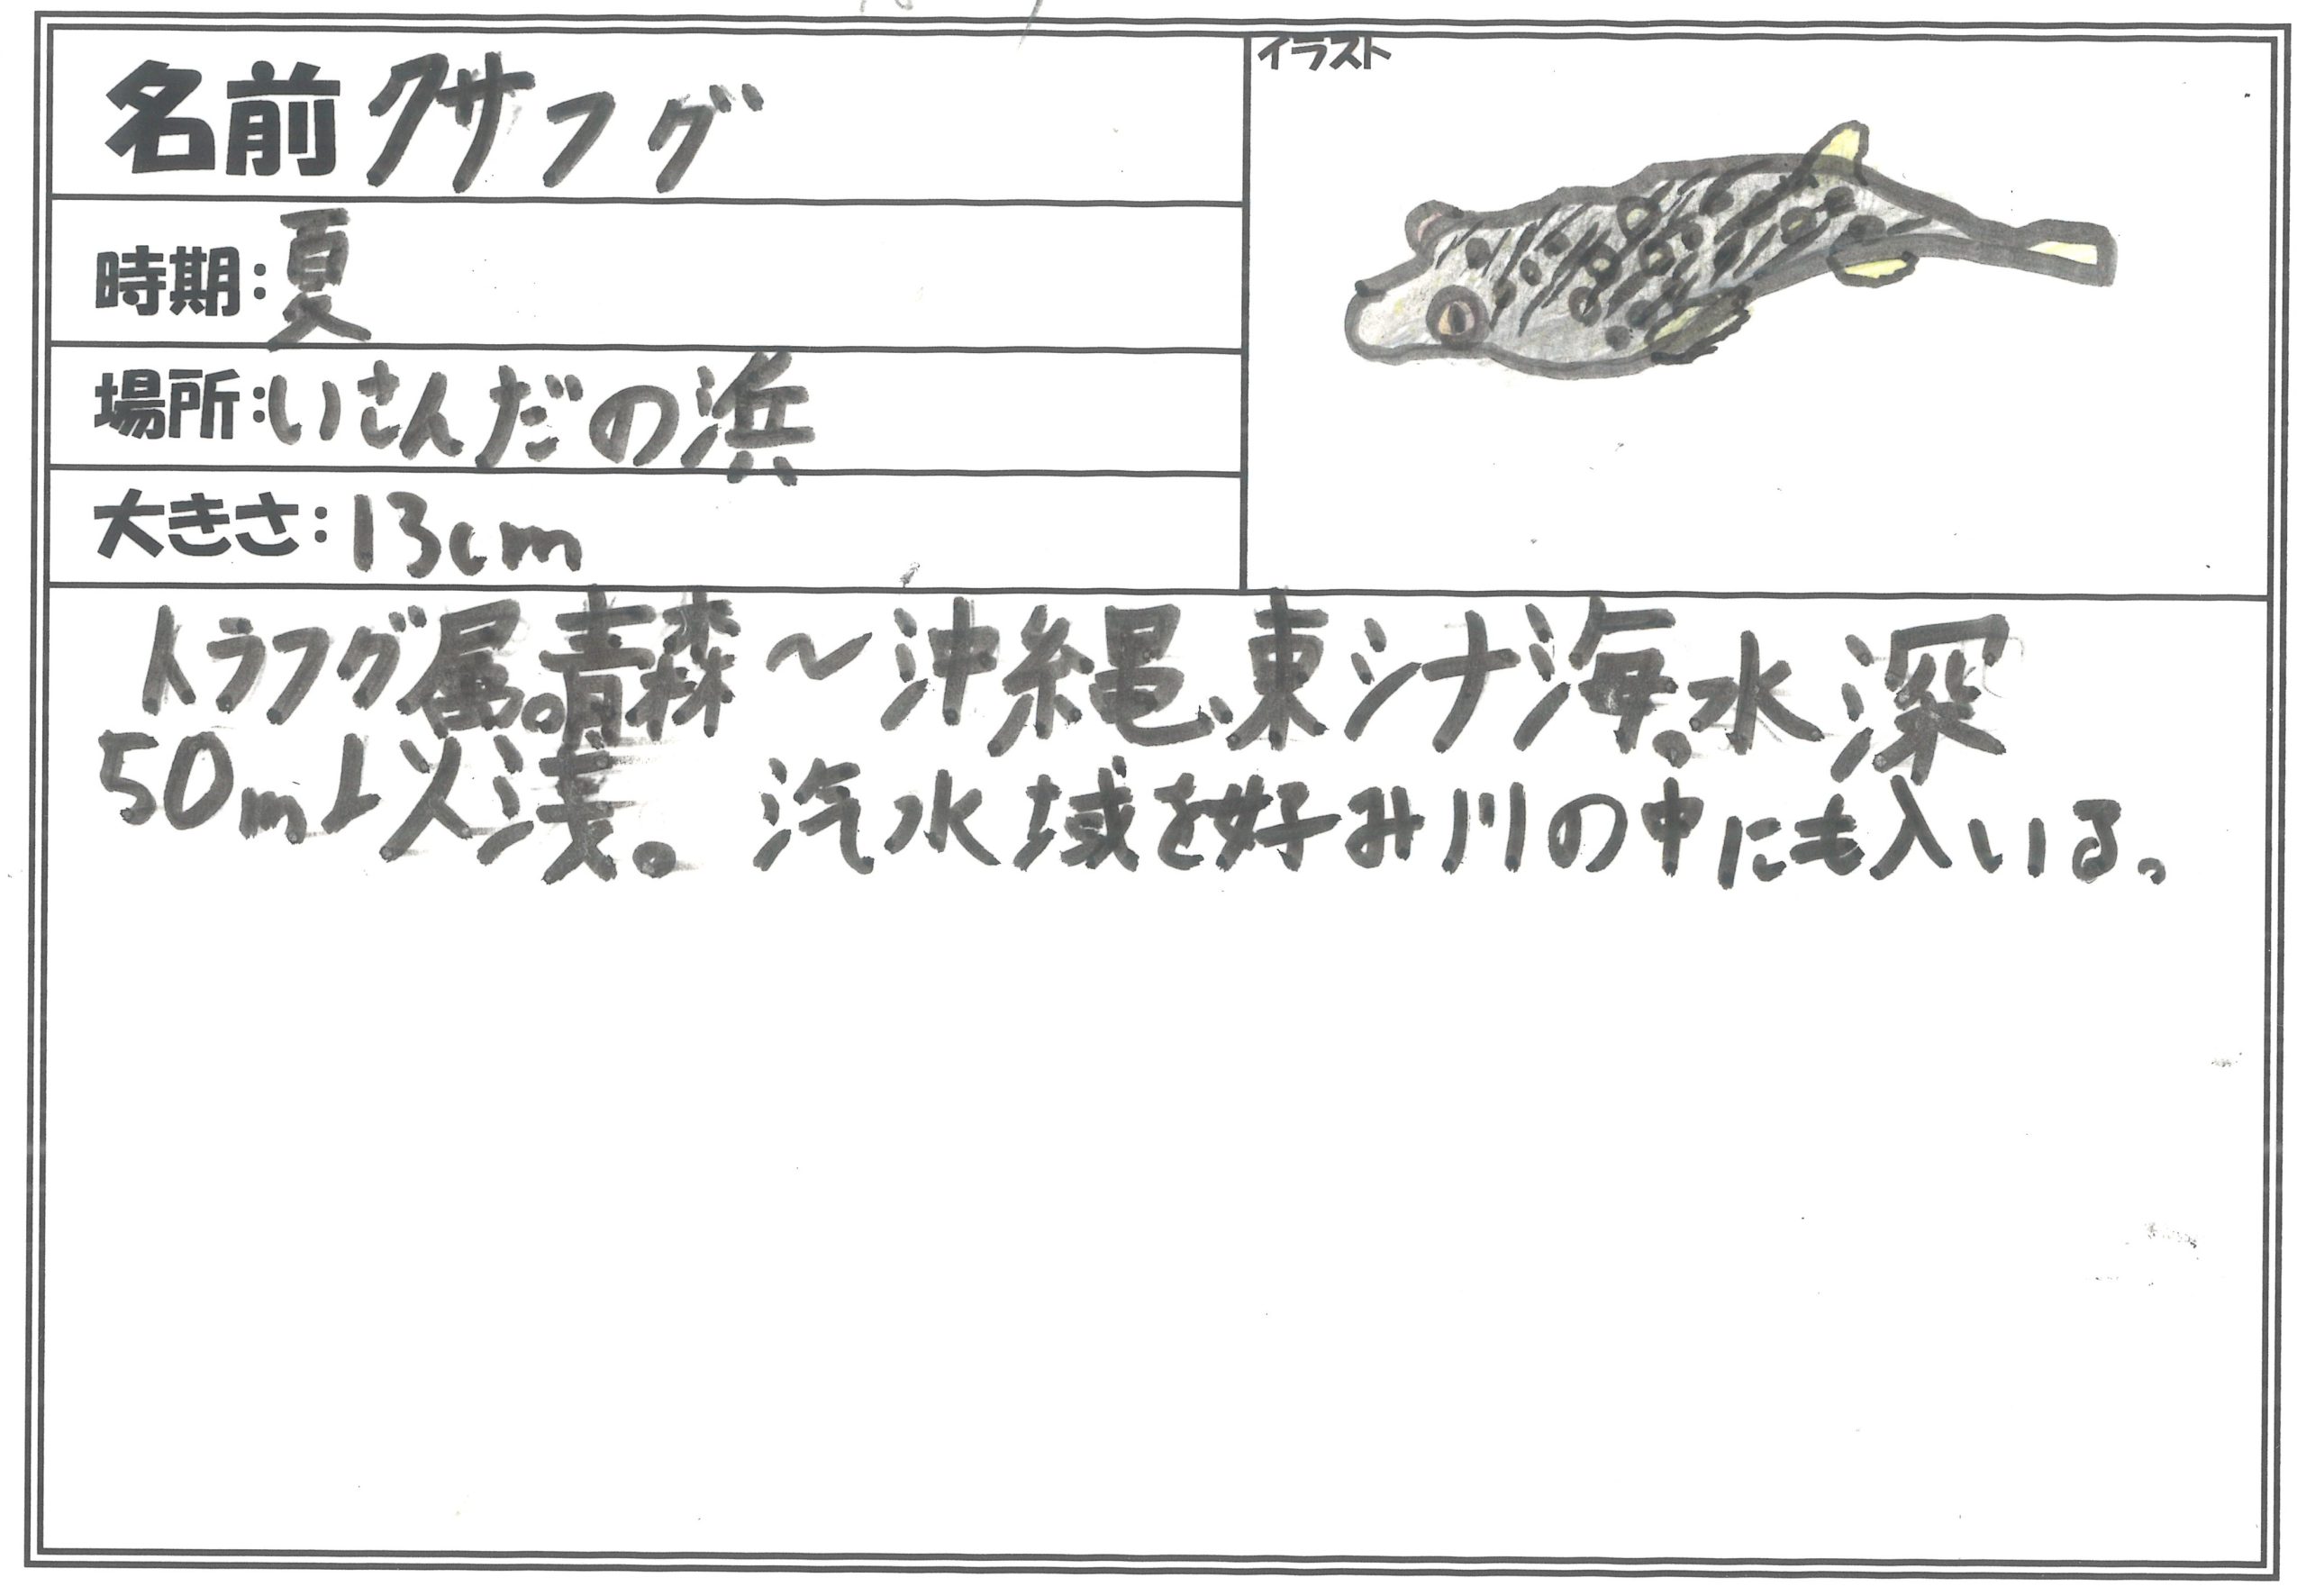 名前 クサフグ
イラスト
時期:夏
場所:いさんだの浜
大きさ:13cm
トラフグ属。青森〜沖縄、東シナ海。水深
50m以浅。汽水域を好み川の中にも入いる。